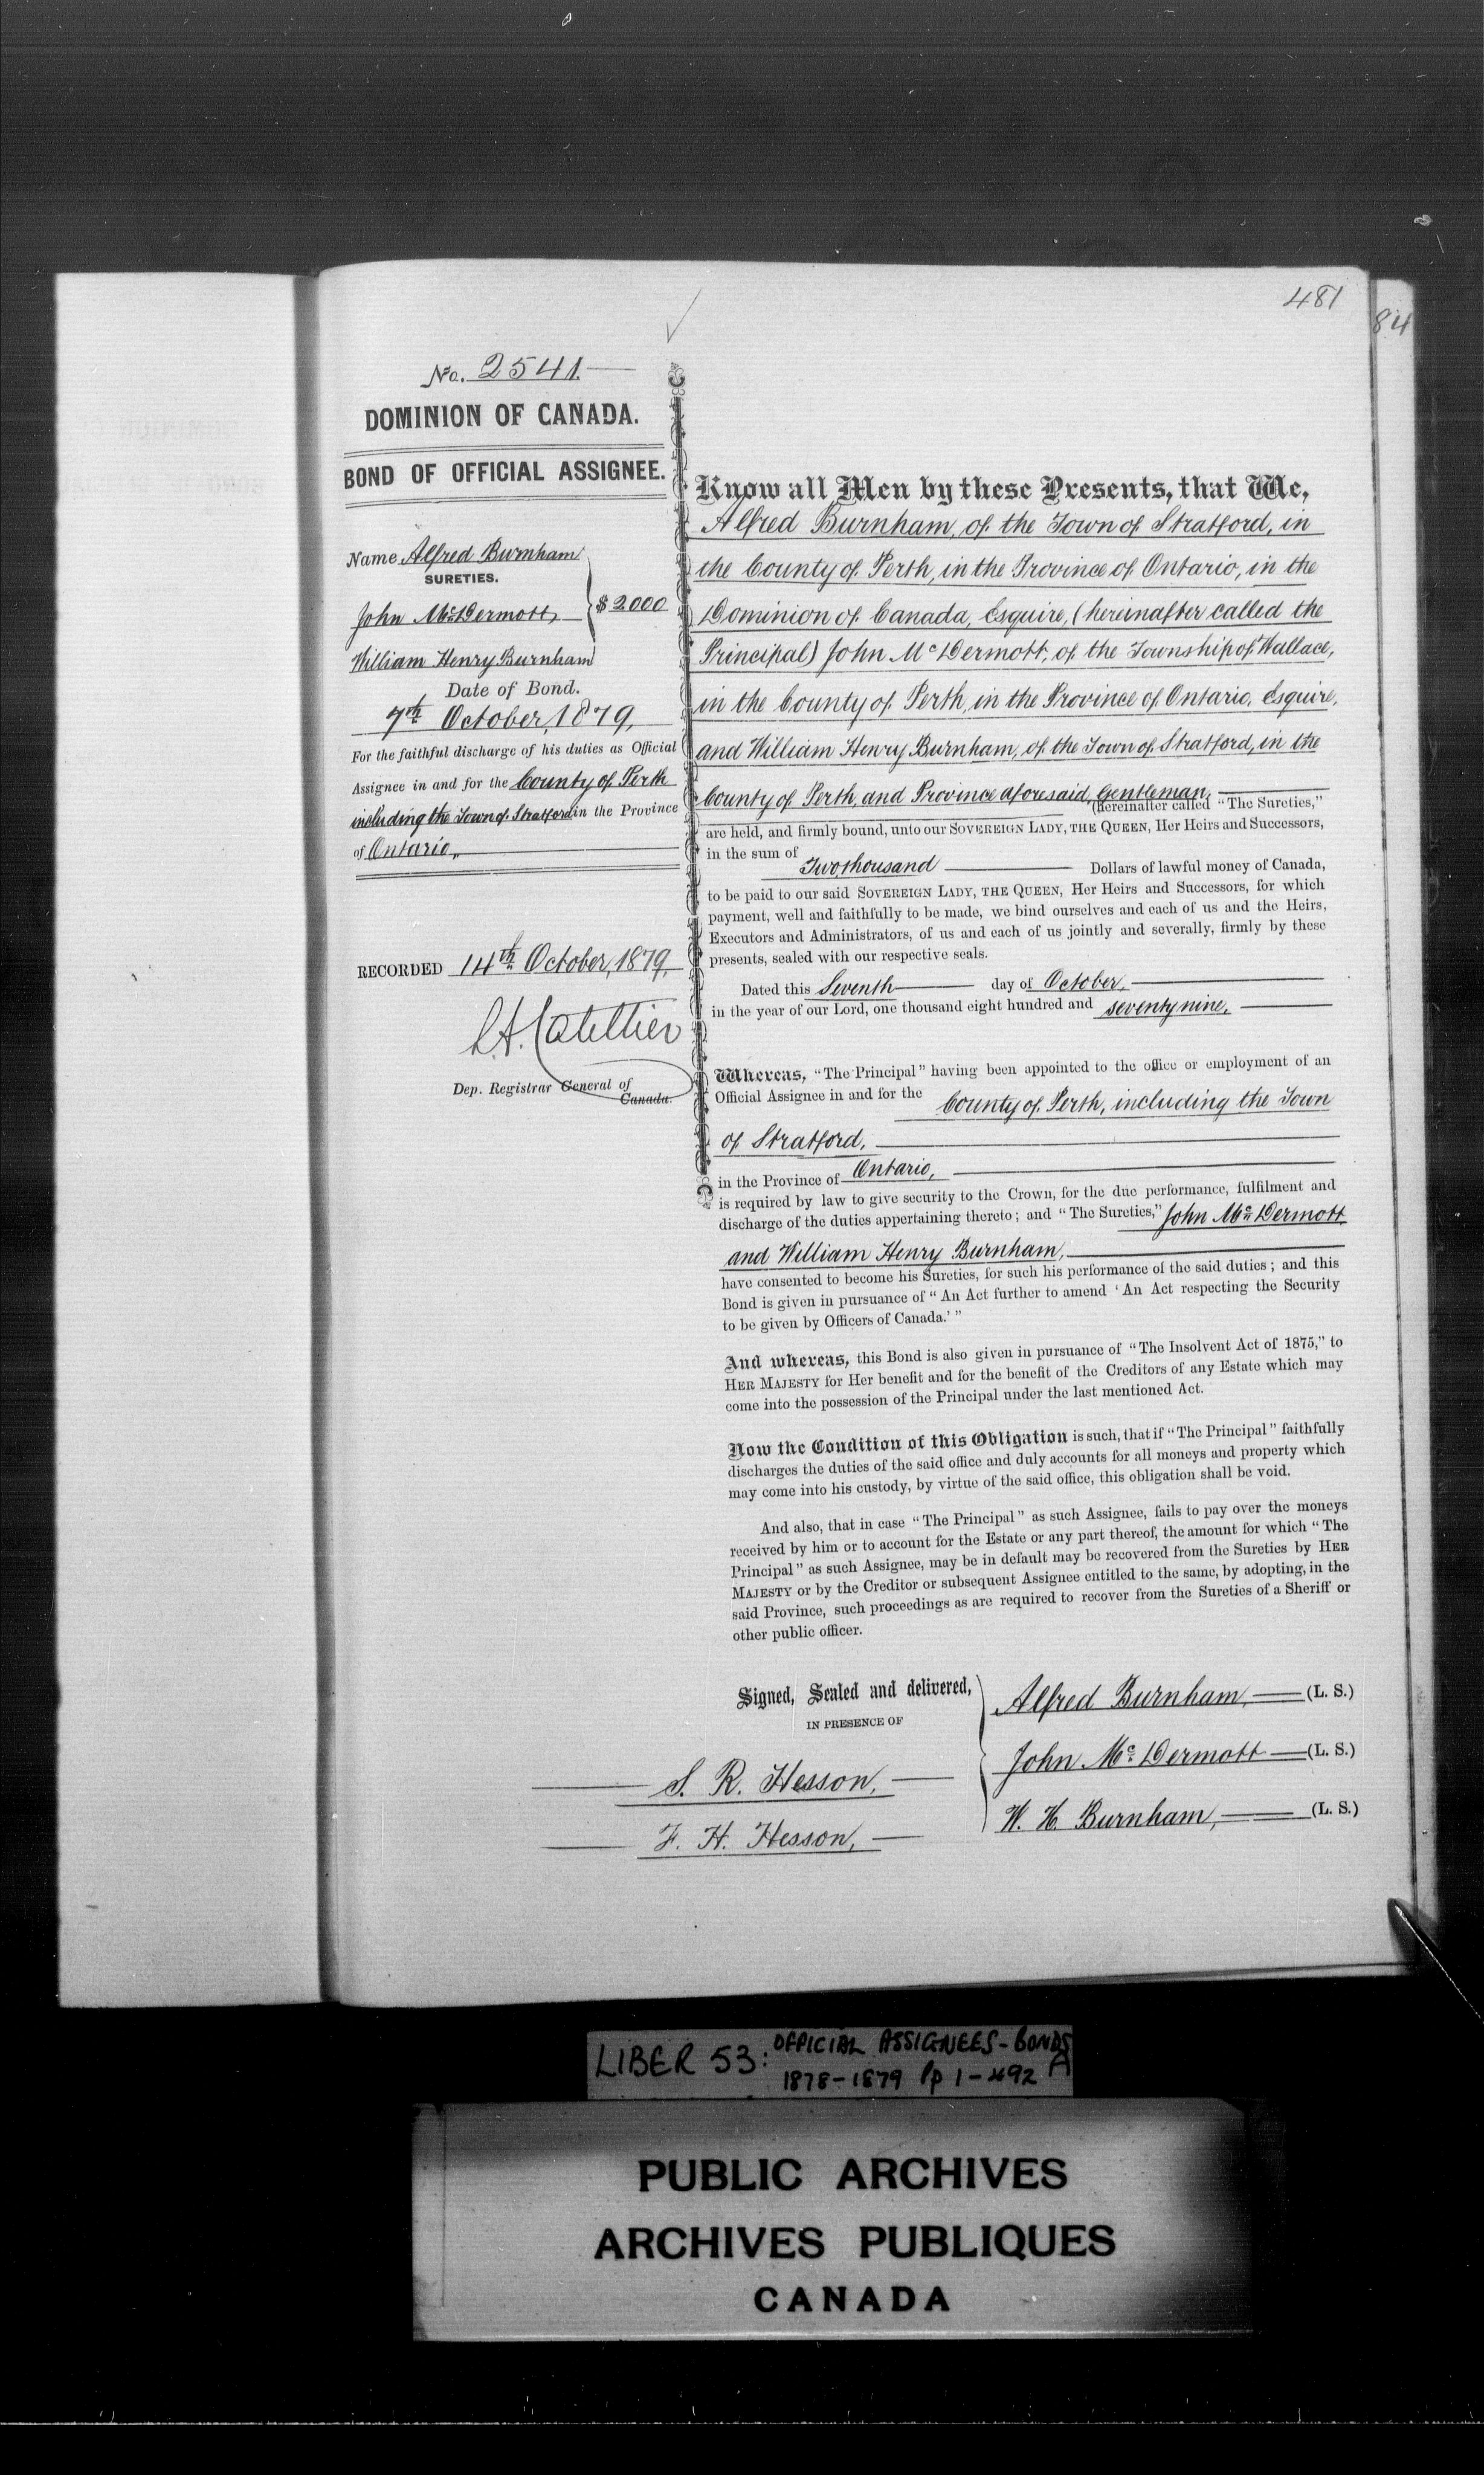 481
84
No. 2541.
DOMINION OF CANADA.
BOND OF OFFICIAL ASSIGNEE.
Name Alfred Burnham
SURETIES.
John McDermott,
$2000
William Henry Burnham
Date of Bond.
7th October, 1879,
For the faithful discharge of his duties as Official
Assignee in and for the County of Perth
including the Town of Stratford in the Province
of Ontario,
RECORDED 14th October, 1879,
L.A. Catellier
Dep. Registrar General of
Canada.
Know all Men by these Presents, that We,
Alfred Burnham, of the Town of Stratford, in
the County of Perth, in the Province of Ontario, in the
Dominion of Canada, Esquire, (hereinafter called the
Principal) John McDermott, of the Township of Wallace,
in the County of Perth, in the Province of Ontario, Esquire,
and William Henry Burnham, of the Town of Stratford, in the
County of Perth, and Province aforesaid, Gentleman,
(hereinafter called "The Sureties,"
are held, and firmly bound, unto our SOVEREIGN LADY, THE QUEEN, Her Heirs and Successors,
in the sum of
Two thousand Dollars of lawful money of Canada,
to be paid to our said SOVEREIGN LADY, THE QUEEN, Her Heirs and Successors, for which
payment, well and faithfully to be made, we bind ourselves and each of us and the Heirs,
Executors and Administrators, of us and each of us jointly and severally, firmly by these
presents, sealed with our respective seals.
Dated this Seventh day of October,
in the year of our Lord, one thousand eight hundred and seventy nine,
Whereas, "The Principal" having been appointed to the office or employment of an
Official Assignee in and for the County of Perth, including the Town
of Stratford,
in the Province of Ontario,
is required by law to give security to the Crown, for the due performance, fulfilment and
discharge of the duties appertaining thereto; and "The Sureties," John McDermott
and William Henry Burnham,
have consented to become his Sureties, for such his performance of the said duties; and this
Bond is given in pursuance of "An Act further to amend 'An Act respecting the Security
to be given by Officers of Canada.'"
And whereas, this Bond is also given in pursuance of "The Insolvent Act of 1875," to
HER MAJESTY for Her benefit and for the benefit of the Creditors of any Estate which may
come into the possession of the Principal under the last mentioned Act.
Now the Condition of this Obligation is such, that if "The Principal" faithfully
discharges the duties of the said office and duly accounts for all moneys and property which
may come into his custody, by virtue of the said office, this obligation shall be void.
And also, that in case "The Principal" as such Assignee, fails to pay over the moneys
received by him or to account for the Estate or any part thereof, the amount for which "The
Principal" as such Assignee, may be in default may be recovered from the Sureties by HER
MAJESTY or by the Creditor or subsequent Assignee entitled to the same, by adopting, in the
said Province, such proceedings as are required to recover from the Sureties of a Sheriff or
other public officer.
Signed, Sealed and delivered,
IN PRESENCE OF
S. R. Hesson,
F. H. Hesson,
Alfred Burnham, (L. S.)
John McDermott (L. S.)
W. H. Burnham, (L. S.)
LIBER 53: OFFICIAL ASSIGNEES - BONDS
1878-1879 Pp 1-492 A
PUBLIC ARCHIVES
ARCHIVES PUBLIQUES
CANADA